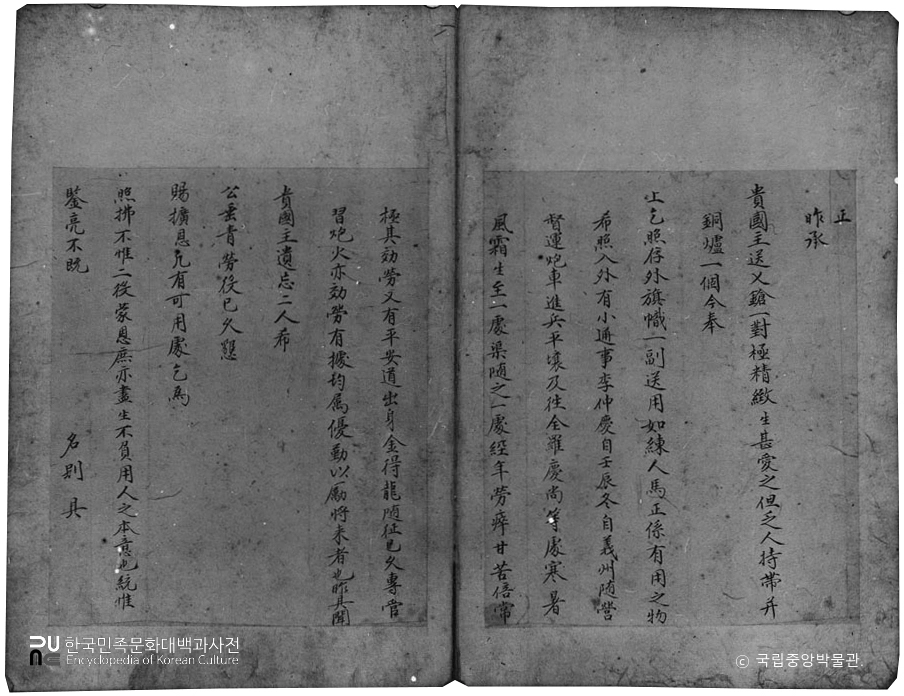 正
昨承
貴國主送乂鎗一對極精緻生甚愛之但乏人持帶并
銅爐一個今奉
上乞照存外旗幟一副送用如練人馬正係有用之物
希照入外有小通事李仲慶自壬辰冬自義州隨營
督運炮車進兵平壤及往全羅慶尚等處寒暑
風霜生至一處渠隨之一處經年勞瘁甘苦倍常
極其効勞又有平安道出身金得龍隨征已久專管
習炮火亦効勞有據均屬優勤以勵將來者也昨具聞
貴國主遺忘二人希
公垂青勞役已久懇
賜擴恩凢有可用處乞為
照拂不惟二役蒙恩庶亦盡生不負用人之本意也統惟
鑒亮不旣
名別具
한국민족문화대백과사전
Encyclopedia of Korean Culture
© 국립중앙박물관